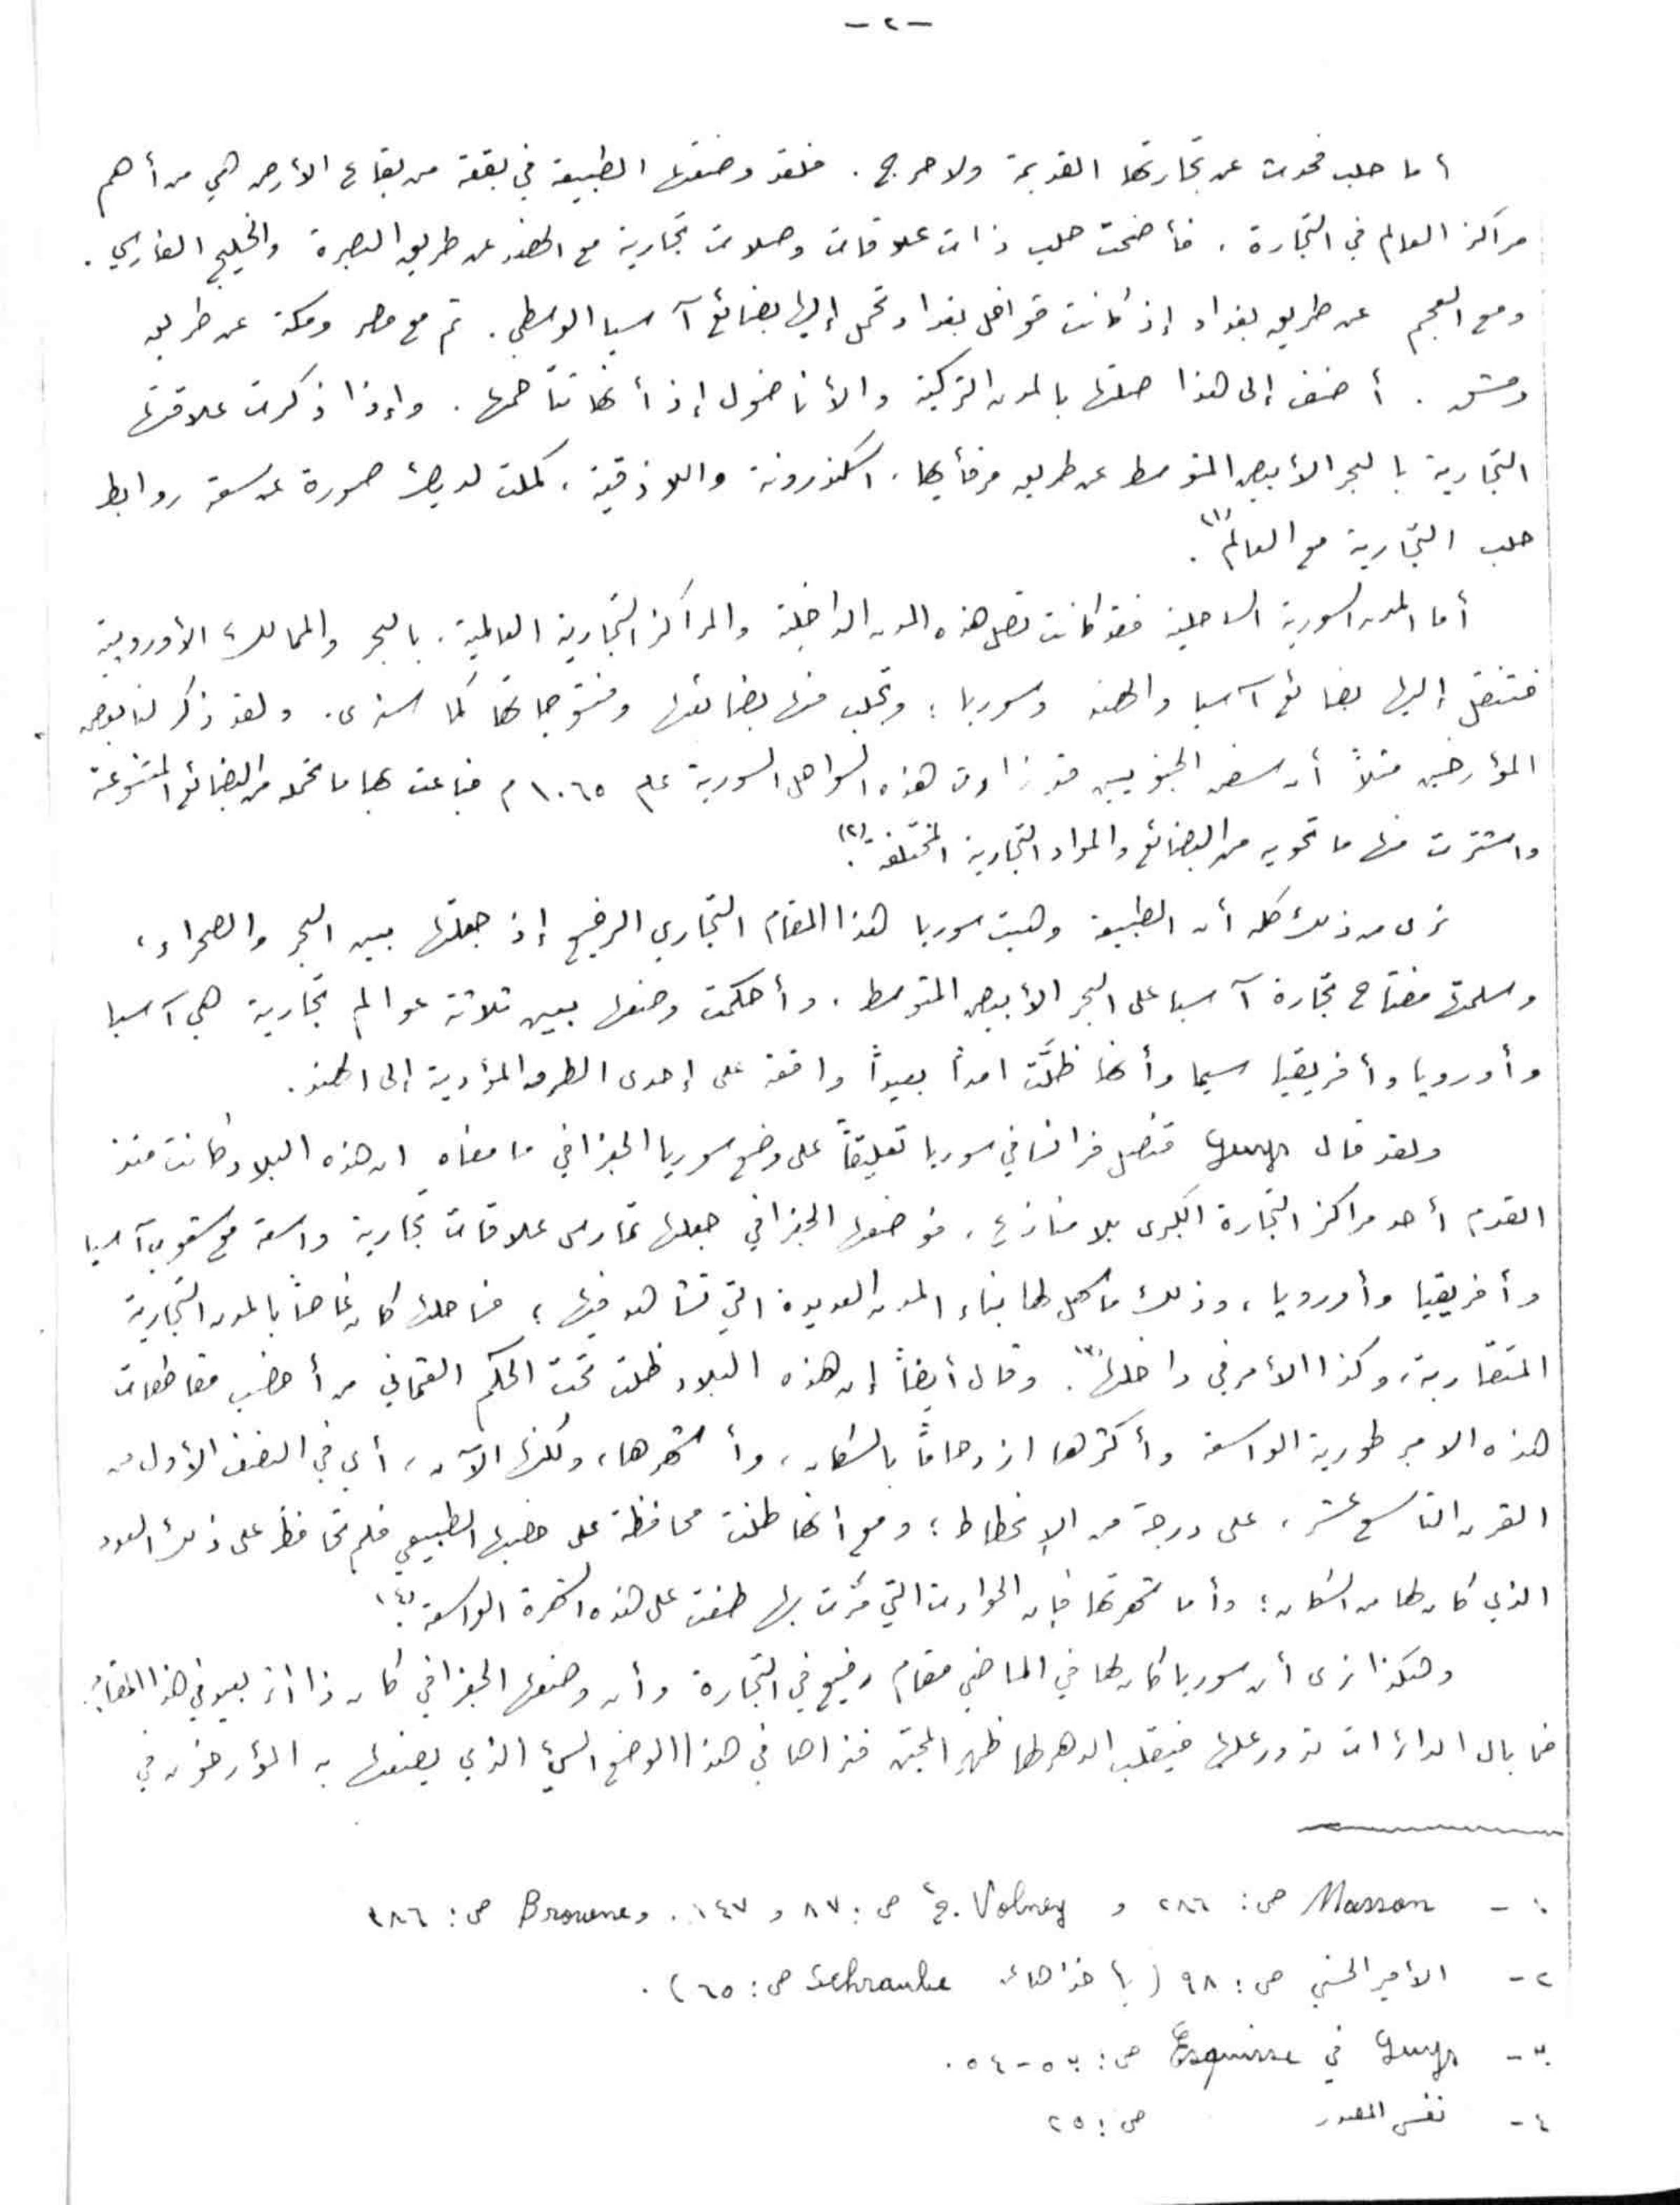 -٢-
أما حلب فحدث عن تجارتها القديمة ولا حرج . فلقد وضعتها الطبيعة في بقعة من بقاع الأرض هي من أهم
مراكز العالم في التجارة . فأضحت حلب ذات علاقات وصلات تجارية مع الهند عن طريق البصرة والخليج الفارسي .
ومع العجم عن طريق بغداد إذ كانت قوافل بغداد تحمل إليها بضائع آسيا الوسطى . ثم مع مصر ومكة عن طريق
دمشق . أضف إلى هذا صلتها بالمدن التركية والأناضول إذ أنها تتاخمها . وإذا ذكرت علاقتها
التجارية بالبحر الأبيض المتوسط عن طريق مرفأيها ، اسكندرونة واللاذقية ، كملت لديك صورة عن سعة روابط
حلب التجارية مع العالم(١) .
أما المدن السورية الساحلية فقد كانت تصل هذه المدن الداخلية والمراكز التجارية العالمية ، بالبحر والممالك الأوروبية
فتنقل إليها بضائع آسيا والهند وسوريا ؛ وتجلب منها بضائعها ومنتوجاتها كما سنرى . ولقد ذكر لنا بعض
المؤرخين مثلاً أن سفن الجنويين قد زارت هذه السواحل السورية عام ١٠٦٥ م فباعت بها ما تحمله من البضائع المتنوعة
واشترت منها ما تحويه من البضائع والمواد التجارية المختلفة(٢) .
نرى من ذلك كله أن الطبيعة وهبت سوريا هذا المقام التجاري الرفيع إذ جعلتها بين البحر والصحراء ،
وسلمتها مفتاح تجارة آسيا على البحر الأبيض المتوسط . وأحكمت وضعها بين ثلاثة عوالم تجارية هي آسيا
وأوروبا وأفريقيا سيما وأنها ظلَّت امداً بعيداً واقفة على إحدى الطرق المؤدية إلى الهند .
ولقد قال Guys قنصل فرانسا في سوريا تعليقاً على وضع سوريا الجغرافي ما معناه ان هذه البلاد كانت منذ
القدم أحد مراكز التجارة الكبرى بلا منازع ، فوضعها الجغرافي جعلها تمارس علاقات تجارية واسعة مع شعوب آسيا
وأفريقيا وأوروبا ، وذلك ما كفل لها بناء المدن العديدة التي تشاهد فيها ؛ فساحلها كان غاصاً بالمدن التجارية
المتقاربة ، وكذا الأمر في داخلها(٣) . وقال أيضاً إن هذه البلاد ظلت تحت الحكم العثماني من أخصب مقاطعات
هذه الامبرطورية الواسعة وأكثرها ازدحاماً بالسكان ، وأشهرها ، ولكنها الآن ، أي في النصف الأول من
القرن التاسع عشر ، على درجة من الإنحطاط ؛ ومع أنها ظلت محافظة على خصبها الطبيعي فلم تحافظ على ذلك العدد
الذي كان لها من السكان ؛ وأما شهرتها فإن الحوادث التي مرّت بها طغت على هذه الشهرة الواسعة(٤) .
وهكذا نرى أن سوريا كان لها في الماضي مقام رفيع في التجارة وأن وضعها الجغرافي كان ذا أثر بعيد في هذا المقام .
فما بال الدائرات تدور عليها فيقلب الدهر لها ظهر المجن فنراها في هذا الوضع السيء الذي يصفها به المؤرخون في
١- Masson ص : ٢٨٦ و Volney ج٢ ص : ٨٧ و ١٤٧ . و Browne ص : ٣٨٦
٢- الأمير الحسني ص : ٩٨ ( يأخذها عن Schraube ص : ٦٥ ) .
٣- Guys في Esquisse ص : ٥٣-٥٤ .
٤- نفس المصدر ص : ٢٥